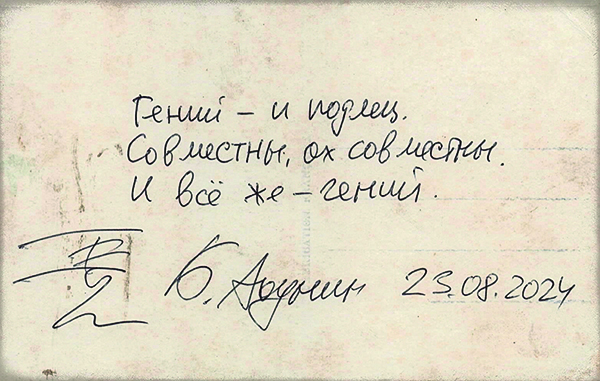 Гений – и подлец.
Совместны, ох совместны.
И всё же – гений.
Б. Акунин 23.08.2024